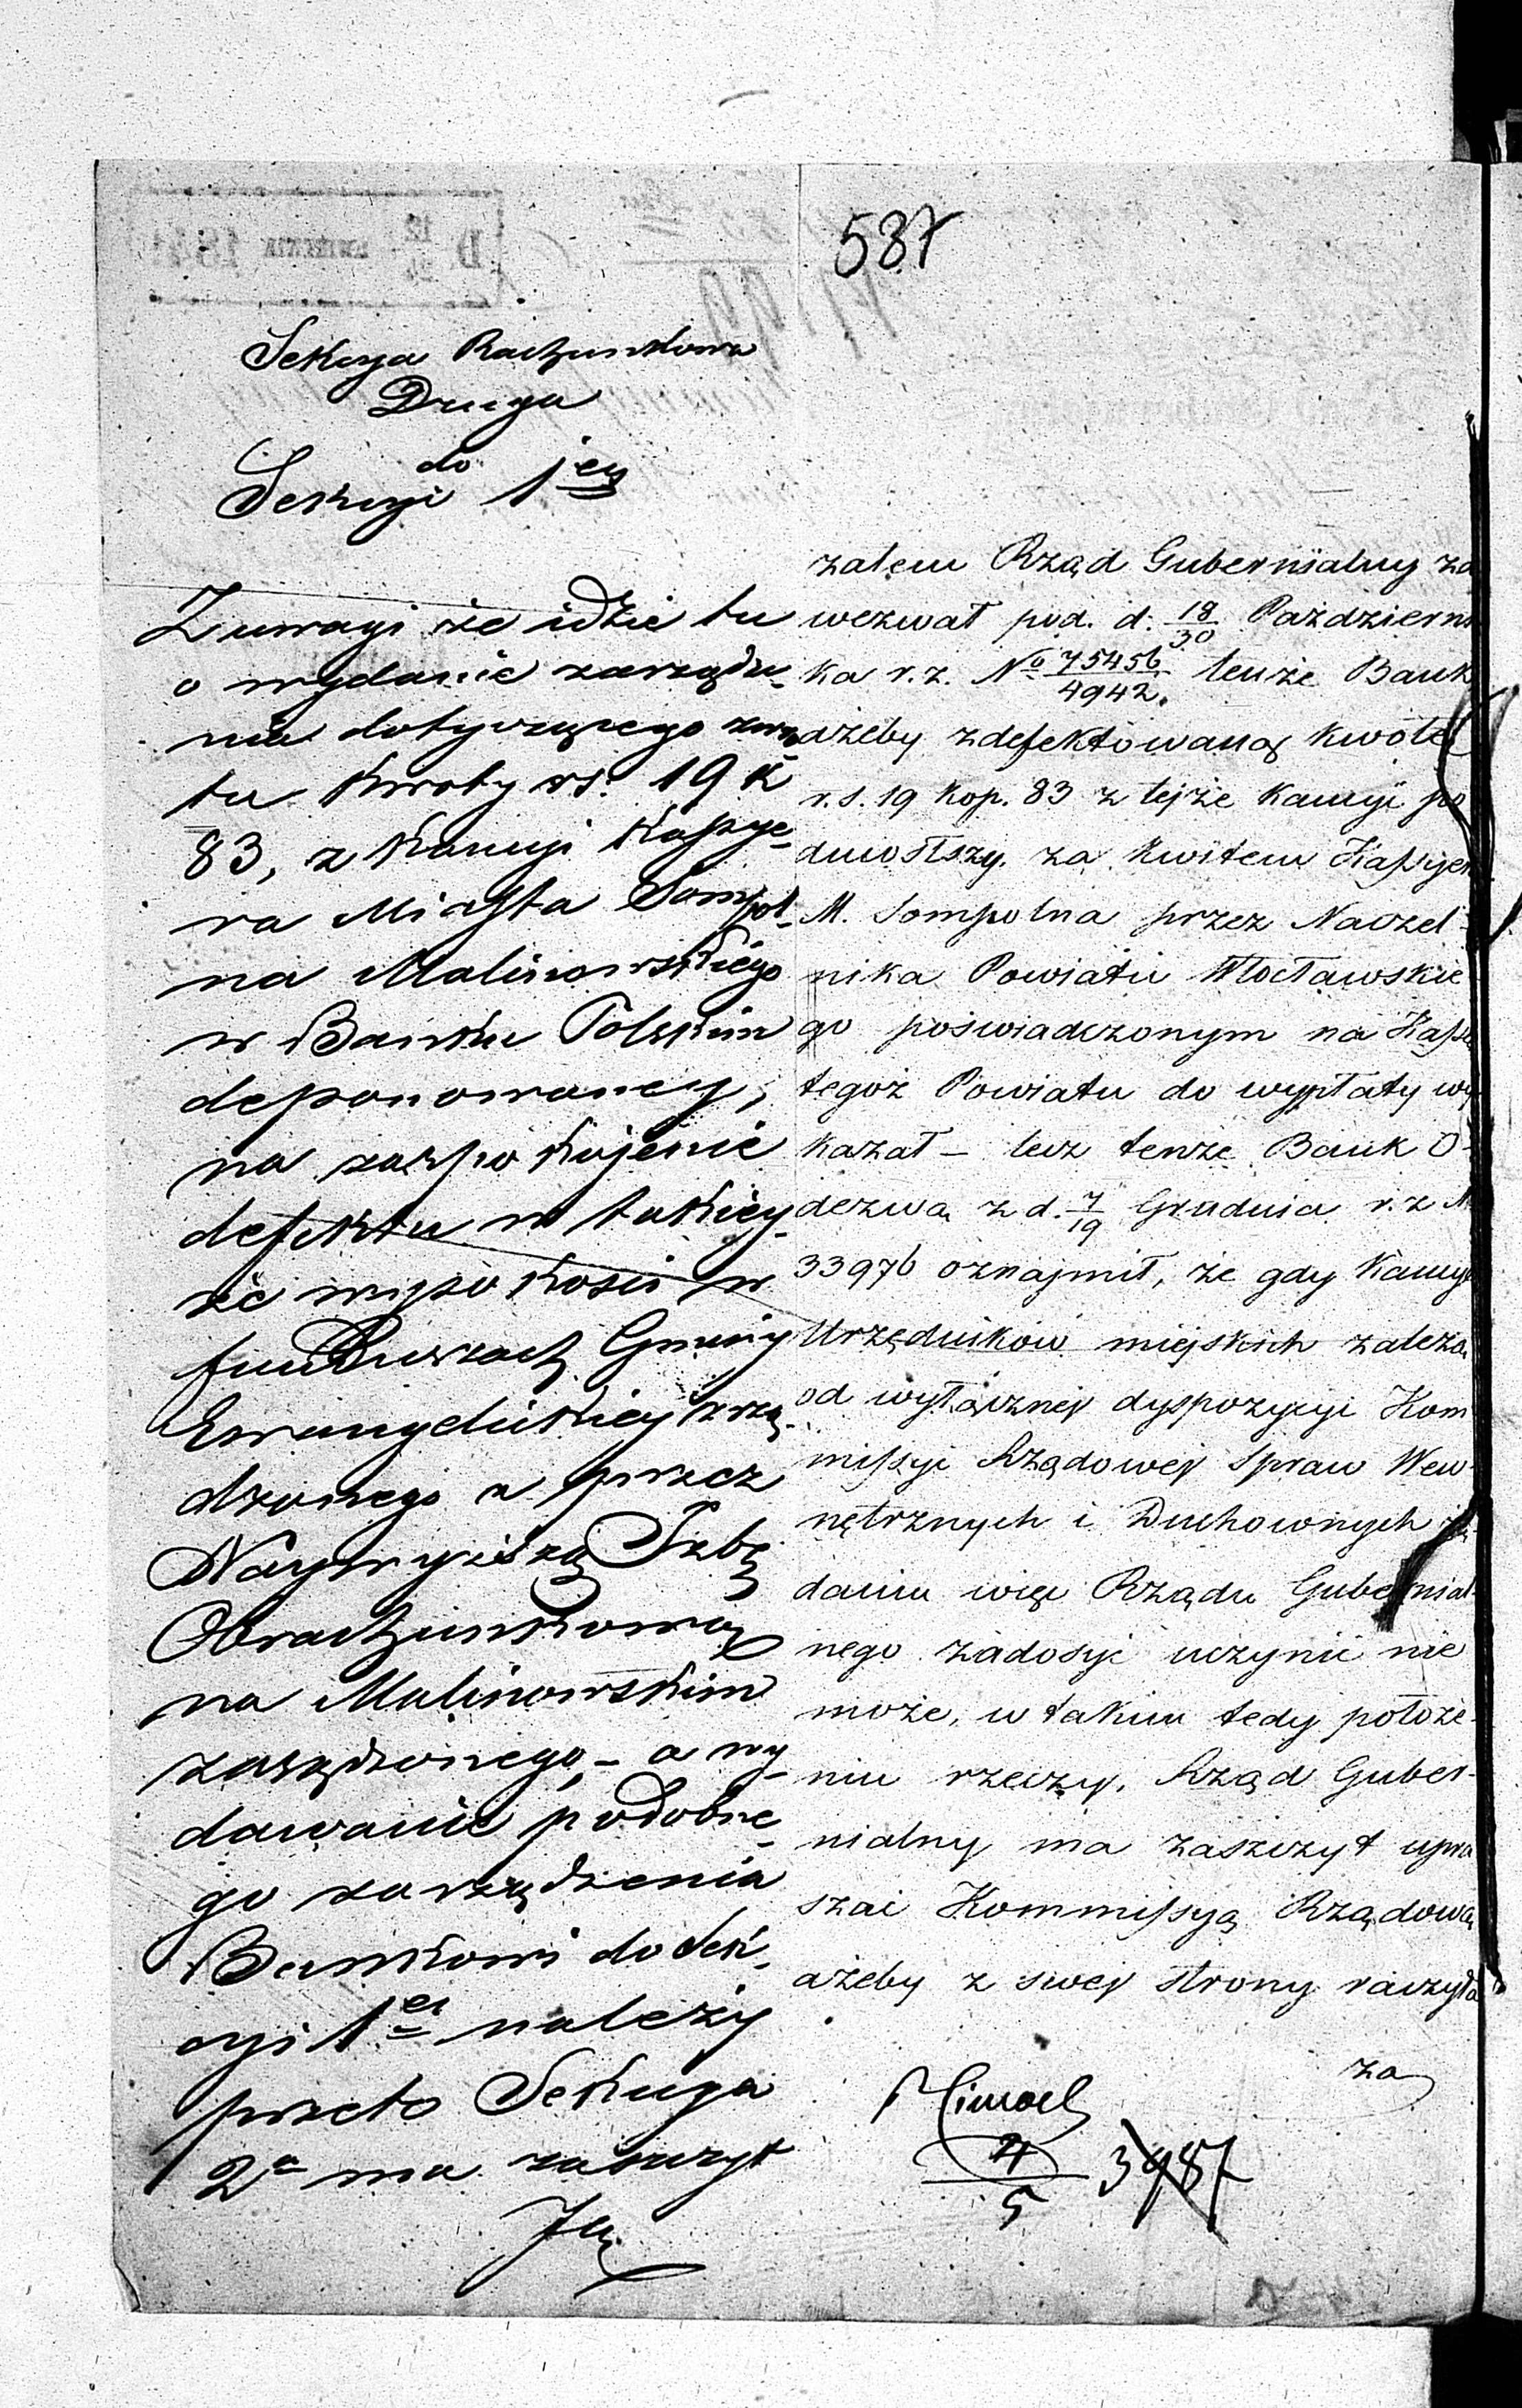 587
Sekcya Rachunkowa
Druga
do
Sekcyi 1ey
Z uwagi że idzie tu
o wydanie zarządze-
nia dotyczącego zwro-
tu kwoty rs. 19 k
83, z Kaucyi Kassye-
ra Miasta Sompol-
na Malinowskiego
w Banku Polskim
deponowaney,
na zaspokojenie
defektu w takiey-
że wysokości w
funduszach Gminy
Ewangelickiey zrzą-
dzonego a przez
Naywyższą Izbę
Obrachunkową
na Malinowskim
zasądzonego, – a wy-
dawanie podobne-
go zarządzenia
Bankowi do Sek-
cyi 1ey należy
przeto Sekcya
2a ma zaszczyt
zatem Rząd Gubernialny za
wezwał pod. d. 18/30 Październi
ka r. z. No 75456/4942. tenże Bank
ażeby zdefektowaną kwotę
r. s. 19 kop. 83 z tejże Kaucyi po
dniosłszy. za kwitem Kassyera
M. Sompolna przez Naczel-
nika Powiatu Włocławskie-
go poświadczonym na Kassę
tegoż Powiatu do wypłaty wy
kazał – lecz tenże Bank O-
dezwą z d. 7/19 Grudnia r. z N
33976 oznajmił, że gdy Kaucye
Urzędników miejskich zależą
od wyłącznej dyspozycyi Kom
missyi Rządowej Spraw Wew-
nętrznych i Duchownych żą-
daniu więc Rządu Gubernial-
nego zadosyć uczynić nie
może, w takim tedy położe-
niu rzeczy, Rząd Guber-
nialny ma zaszczyt upra
szać Kommissyą Rządową
ażeby z swej strony raczyła
za
4/5 3987